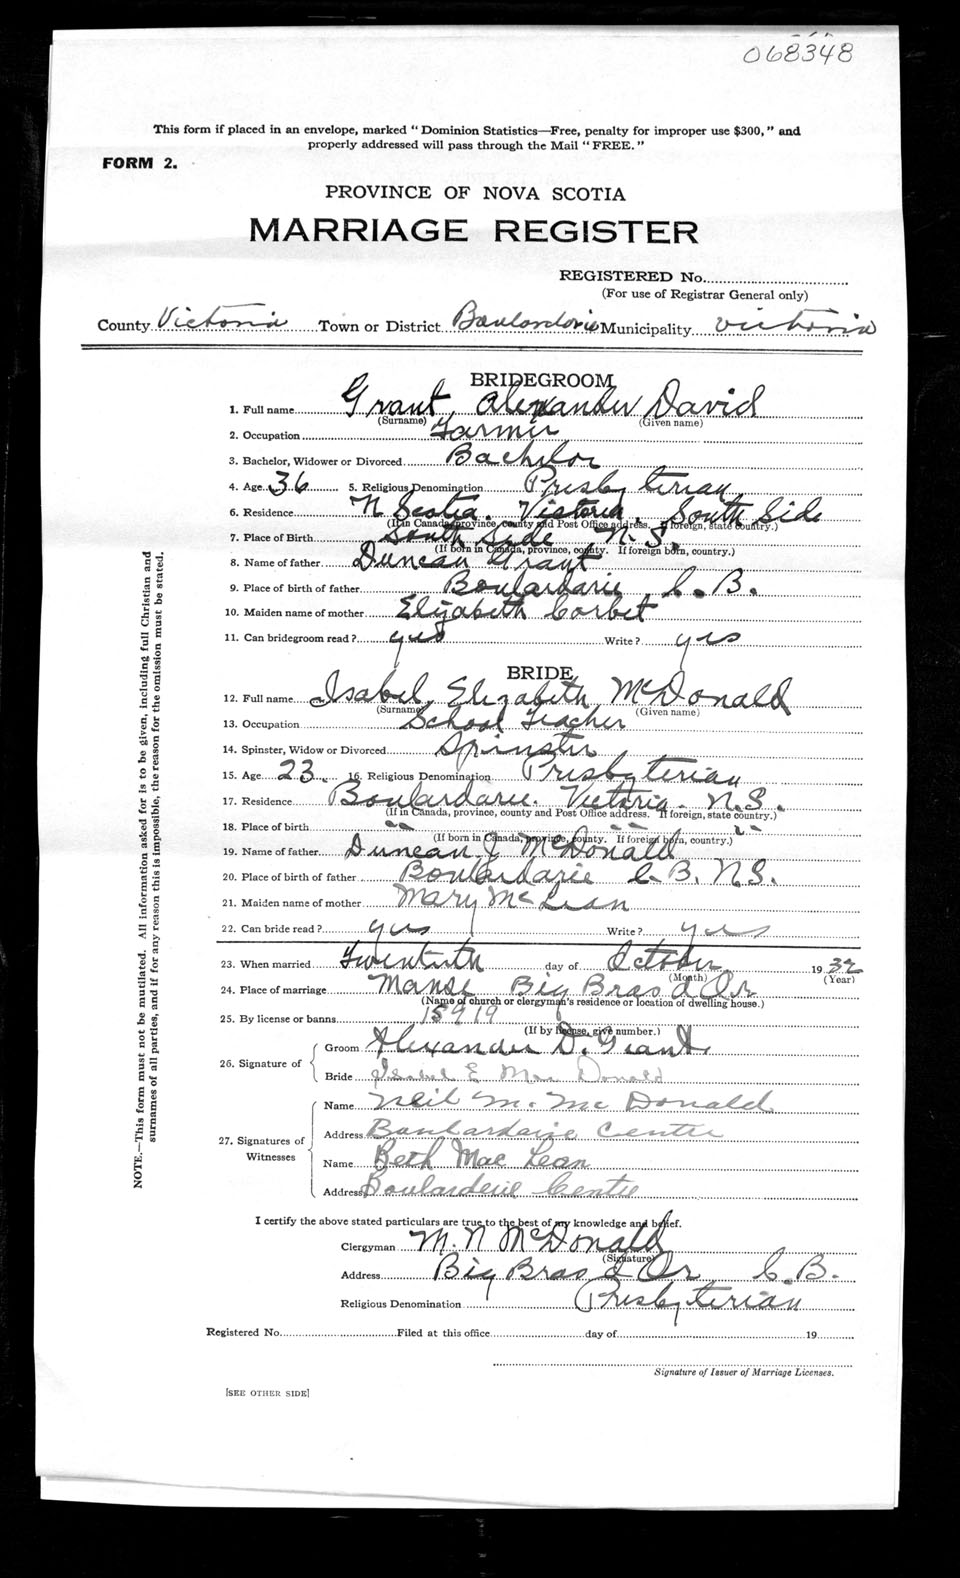 068348
This form if placed in an envelope, marked "Dominion Statistics—Free, penalty for improper use $300," and
properly addressed will pass through the Mail "FREE."
FORM 2.
PROVINCE OF NOVA SCOTIA
MARRIAGE REGISTER
REGISTERED No.
(For use of Registrar General only)
County Victoria Town or District Boulardarie Municipality Victoria
BRIDEGROOM
1. Full name Grant, Alexander David
(Surname) (Given name)
2. Occupation Farmer
3. Bachelor, Widower or Divorced Bachelor
4. Age 36 5. Religious Denomination Presbyterian
6. Residence N Scotia. Victoria. South Side
(If in Canada, province, county and Post Office address. If foreign, state country.)
7. Place of Birth South Side N.S.
(If born in Canada, province, county. If foreign born, country.)
8. Name of father Duncan Grant
9. Place of birth of father Boulardarie C.B.
10. Maiden name of mother Elizabeth Corbet
11. Can bridegroom read? yes Write? yes
BRIDE
12. Full name Isabel, Elizabeth McDonald
(Surname) (Given name)
13. Occupation School Teacher
14. Spinster, Widow or Divorced Spinster
15. Age 23. 16. Religious Denomination Presbyterian
17. Residence Boulardarie. Victoria. N.S.
(If in Canada, province, county and Post Office address. If foreign, state country.)
18. Place of birth " " "
(If born in Canada, province, county. If foreign born, country.)
19. Name of father Duncan J McDonald
20. Place of birth of father Boulardarie C.B. N.S.
21. Maiden name of mother Mary McLean
22. Can bride read? yes Write? yes
23. When married Twentieth day of October 1932
(Month) (Year)
24. Place of marriage Manse Big Bras d Or
(Name of church or clergyman's residence or location of dwelling house.)
25. By license or banns 15919
(If by license, give number.)
26. Signature of Groom Alexander D. Grant
Bride Isabel E Mac Donald
27. Signatures of Witnesses Name Neil M. Mc Donald
Address Boulardarie Centre
Name Beth Mac Lean
Address Boularderie Centre
I certify the above stated particulars are true to the best of my knowledge and belief.
Clergyman M. N McDonald
(Signature)
Address Big Bras d Or C.B.
Religious Denomination Presbyterian
Registered No. Filed at this office day of 19
Signature of Issuer of Marriage Licenses.
[SEE OTHER SIDE]
NOTE.—This form must not be mutilated. All information asked for is to be given, including full Christian and
surnames of all parties, and if for any reason this is impossible, the reason for the omission must be stated.